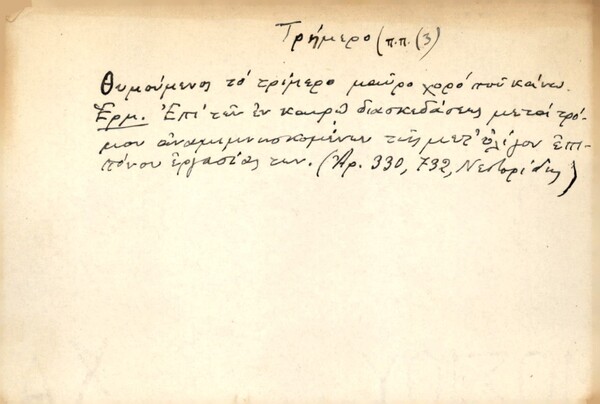 Τρήμερο (π.π. (3)
Θυμούμενος τό τρίμερο μαῦρο χορό πού κάνω.
Ἑρμ. Ἐπί τῶν ἐν καιρῷ διασκεδάσεως μετά τρό-
μου ἀναμιμνησκομένων τῆς μετ' ὀλίγον ἐπι-
πόνου ἐργασίας των. (Ἀρ. 330, 732, Νεστορίδης)